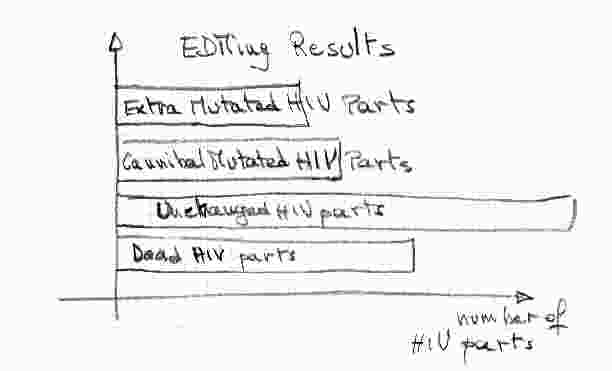 EDITing Results
Extra Mutated HIV Parts
Cannibal Mutated HIV Parts
Unchanged HIV parts
Dead HIV parts
number of
HIV parts